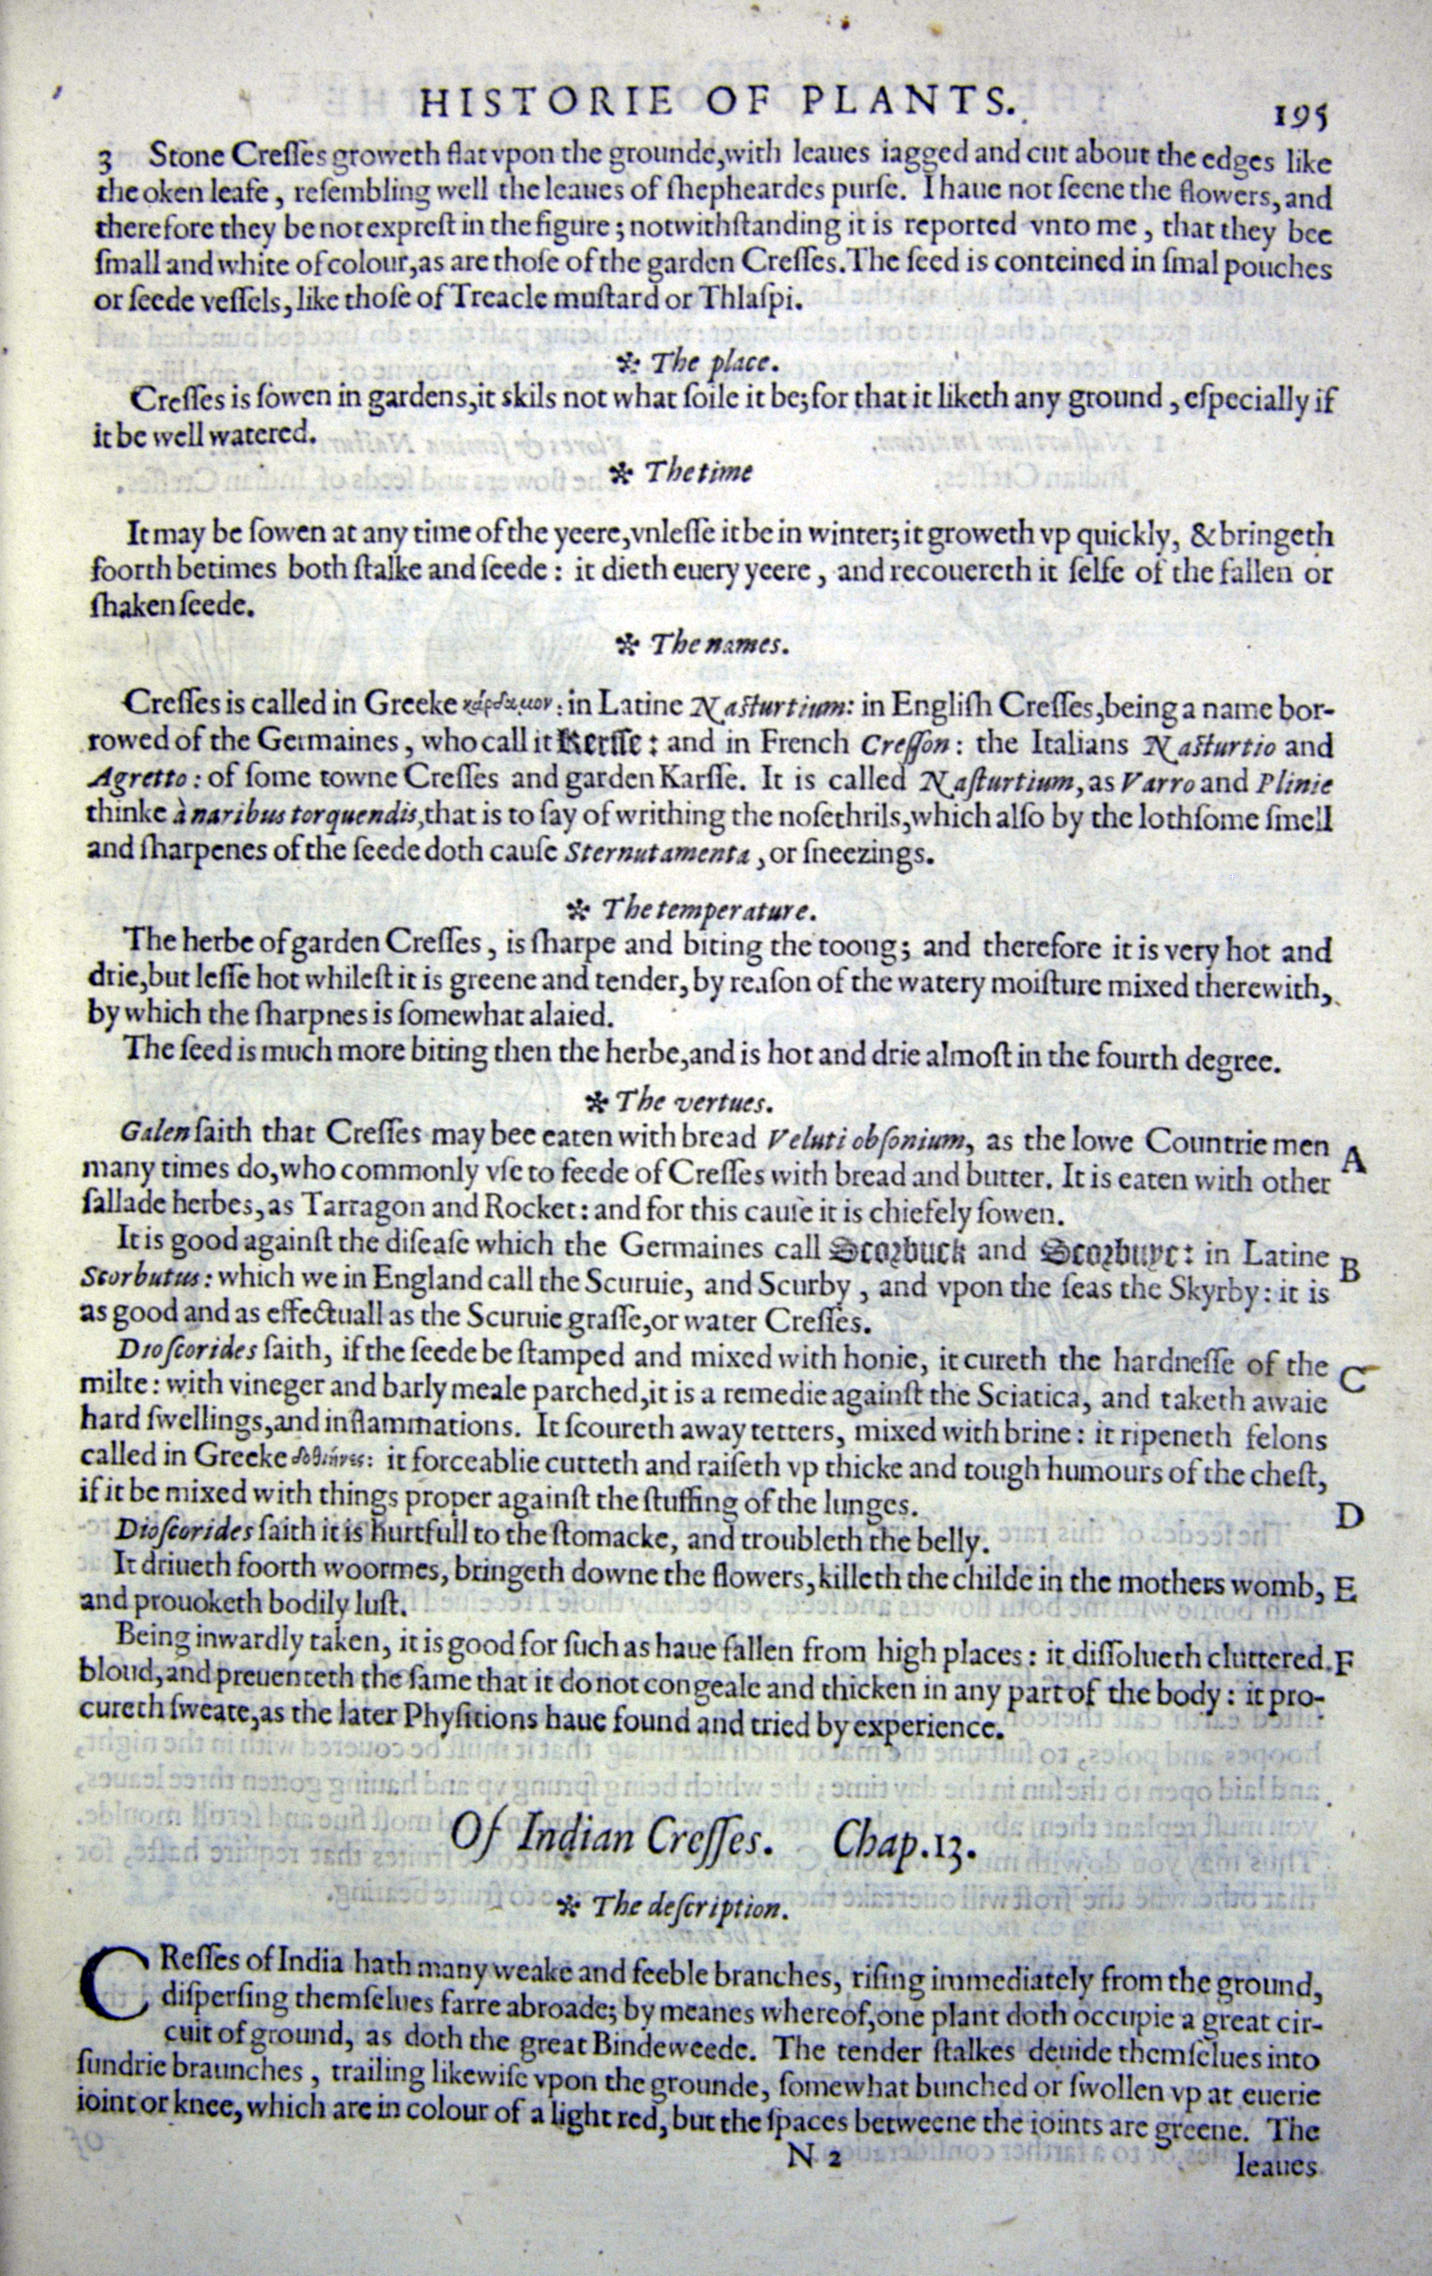 HISTORIE OF PLANTS. 195
3 Stone Creſſes groweth flat vpon the grounde,with leaues iagged and cut about the edges like
the oken leafe, reſembling well the leaues of ſhepheardes purſe. I haue not ſeene the flowers, and
therefore they be not expreſt in the figure; notwithſtanding it is reported vnto me, that they bee
ſmall and white of colour,as are thoſe of the garden Creſſes.The ſeed is conteined in ſmal pouches
or ſeede veſſels, like thoſe of Treacle muſtard or Thlaſpi.
❋ The place.
Creſſes is ſowen in gardens,it skils not what ſoile it be;for that it liketh any ground, eſpecially if
it be well watered.
❋ The time
It may be ſowen at any time of the yeere,vnleſſe it be in winter;it groweth vp quickly, & bringeth
foorth betimes both ſtalke and ſeede: it dieth euery yeere, and recouereth it ſelfe of the fallen or
ſhaken ſeede.
❋ The names.
Creſſes is called in Greeke κάρδαμον: in Latine Naſturtium: in Engliſh Creſſes,being a name bor-
rowed of the Germaines, who call it Kerſſe: and in French Creſſon: the Italians Naſturtio and
Agretto: of ſome towne Creſſes and garden Karſſe. It is called Naſturtium, as Varro and Plinie
thinke à naribus torquendis,that is to ſay of writhing the noſethrils,which alſo by the lothſome ſmell
and ſharpenes of the ſeede doth cauſe Sternutamenta, or ſneezings.
❋ The temperature.
The herbe of garden Creſſes, is ſharpe and biting the toong; and therefore it is very hot and
drie,but leſſe hot whileſt it is greene and tender, by reaſon of the watery moiſture mixed therewith,
by which the ſharpnes is ſomewhat alaied.
The ſeed is much more biting then the herbe,and is hot and drie almoſt in the fourth degree.
❋ The vertues.
Galen ſaith that Creſſes may bee eaten with bread Veluti obſonium, as the lowe Countrie men A
many times do,who commonly vſe to feede of Creſſes with bread and butter. It is eaten with other
ſallade herbes,as Tarragon and Rocket: and for this cauſe it is chiefely ſowen.
It is good againſt the diſeaſe which the Germaines call Scorbuck and Scorbuyc: in Latine B
Scorbutus: which we in England call the Scuruie, and Scurby, and vpon the ſeas the Skyrby: it is
as good and as effectuall as the Scuruie graſſe,or water Creſſes.
Dioſcorides ſaith, if the ſeede be ſtamped and mixed with honie, it cureth the hardneſſe of the C
milte: with vineger and barly meale parched,it is a remedie againſt the Sciatica, and taketh awaie
hard ſwellings,and inflammations. It ſcoureth away tetters, mixed with brine: it ripeneth felons
called in Greeke δοθιῆνες: it forceablie cutteth and raiſeth vp thicke and tough humours of the cheſt,
if it be mixed with things proper againſt the ſtuffing of the lunges.
Dioſcorides ſaith it is hurtfull to the ſtomacke, and troubleth the belly. D
It driueth foorth woormes, bringeth downe the flowers, killeth the childe in the mothers womb, E
and prouoketh bodily luſt.
Being inwardly taken, it is good for ſuch as haue fallen from high places: it diſſolueth cluttered F
bloud,and preuenteth the ſame that it do not congeale and thicken in any part of the body: it pro-
cureth ſweate,as the later Phyſitions haue found and tried by experience.
Of Indian Creſſes. Chap.13.
❋ The deſcription.
CReſſes of India hath many weake and feeble branches, riſing immediately from the ground,
diſperſing themſelues farre abroade; by meanes whereof,one plant doth occupie a great cir-
cuit of ground, as doth the great Bindeweede. The tender ſtalkes deuide themſelues into
ſundrie braunches, trailing likewiſe vpon the grounde, ſomewhat bunched or ſwollen vp at euerie
ioint or knee, which are in colour of a light red, but the ſpaces betweene the ioints are greene. The
N 2 leaues